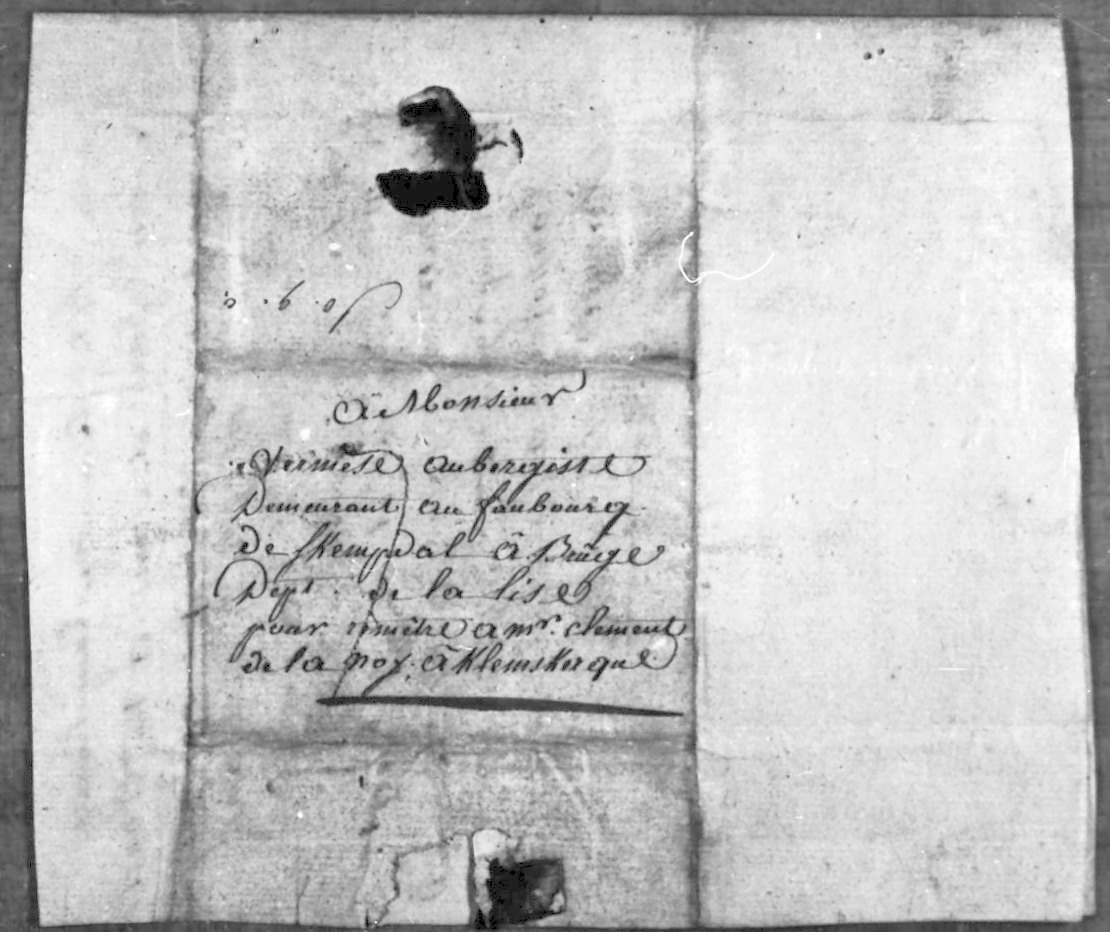 à Monsieur
Vermêse aubergiste
Demeurant au faubourg
de Skempdal â Bruge
Dept. de la lise
pour remêtre a mr. clement
de la noy. â Klemskerque